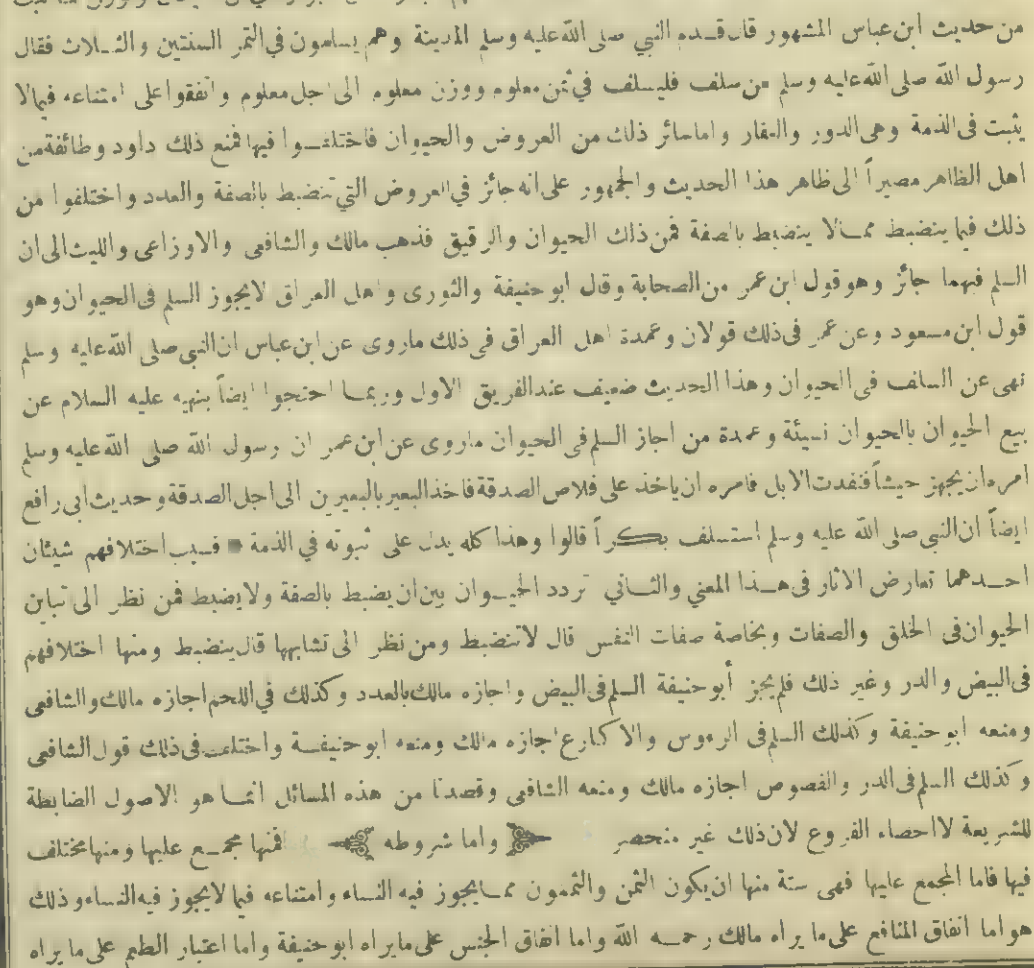 من حديث ابن عباس المشهور قال قـدم النبي صلى الله عليه وسلم المدينة وهم يسلمون في التمر السنتين والثـلاث فقال
رسول الله صلى الله عليه وسلم من سلف فليسلف في ثمن معلوم ووزن معلوم الى اجل معلوم واتفقوا على امتناعه فيما لا
يثبت في الذمة وهى الدور والعقار واما سائر ذلك من العروض والحيوان فاختلفـوا فيها فمنع ذلك داود وطائفة من
اهل الظاهر مصيراً الى ظاهر هذا الحديث والجمهور على انه جائز في العروض التي تنضبط بالصفة والعدد واختلفوا من
ذلك فيما ينضبط ممـا لا ينضبط بالصفة فمن ذلك الحيوان والرقيق فذهب مالك والشافعى والاوزاعى والليث الى ان
السلم فيهما جائز وهو قول ابن عمر من الصحابة وقال ابو حنيفة والثورى واهل العراق لا يجوز السلم فى الحيوان وهو
قول ابن مسعود وعن عمر فى ذلك قولان وعمدة اهل العراق فى ذلك ماروى عن ابن عباس ان النبى صلى الله عليه وسلم
نهى عن السلف فى الحيوان وهذا الحديث ضعيف عند الفريق الاول وربمـا احتجوا ايضاً بنهيه عليه السلام عن
بيع الحيوان بالحيوان نسيئة وعمدة من اجاز السلم فى الحيوان ماروى عن ابن عمر ان رسول الله صلى الله عليه وسلم
امره ان يجهز جيشاً فنفدت الابل فامره ان ياخذ على قلاص الصدقة فاخذ البعير بالبعيرين الى اجل الصدقة وحديث ابى رافع
ايضاً ان النبى صلى الله عليه وسلم استسلف بكراً قالوا وهذا كله يدل على ثبوته في الذمة * فسبب اختلافهم شيئان
احـدهما تعارض الاثار فى هـذا المعنى والثـانى تردد الحيـوان بين ان يضبط بالصفة ولا يضبط فمن نظر الى تباين
الحيوان فى الخلق والصفات وبخاصة صفات النفس قال لا تنضبط ومن نظر الى تشابهها قال ينضبط ومنها اختلافهم
فى البيض والدر وغير ذلك فلم يجز أبو حنيفة السلم فى البيض واجازه مالك بالعدد وكذلك فى اللحم اجازه مالك والشافعى
ومنعه ابو حنيفة وكذلك السلم فى الرءوس والاكارع اجازه مالك ومنعه ابو حنيفـة واختلف فى ذلك قول الشافعى
وكذلك السلم فى الدر والفصوص اجازه مالك ومنعه الشافعى وقصدنا من هذه المسائل انمـا هو الاصول الضابطة
للشريعة لا احصاء الفروع لان ذلك غير منحصر واما شروطه فمنها مجمـع عليها ومنها مختلف
فيها فاما المجمع عليها فهى ستة منها ان يكون الثمن والمثمون ممـا يجوز فيه النساء وامتناعه فيما لا يجوز فيه النساء وذلك
هو اما اتفاق المنافع على ما يراه مالك رحمـه الله واما اتفاق الجنس على ما يراه ابو حنيفة واما اعتبار الطعم على ما يراه